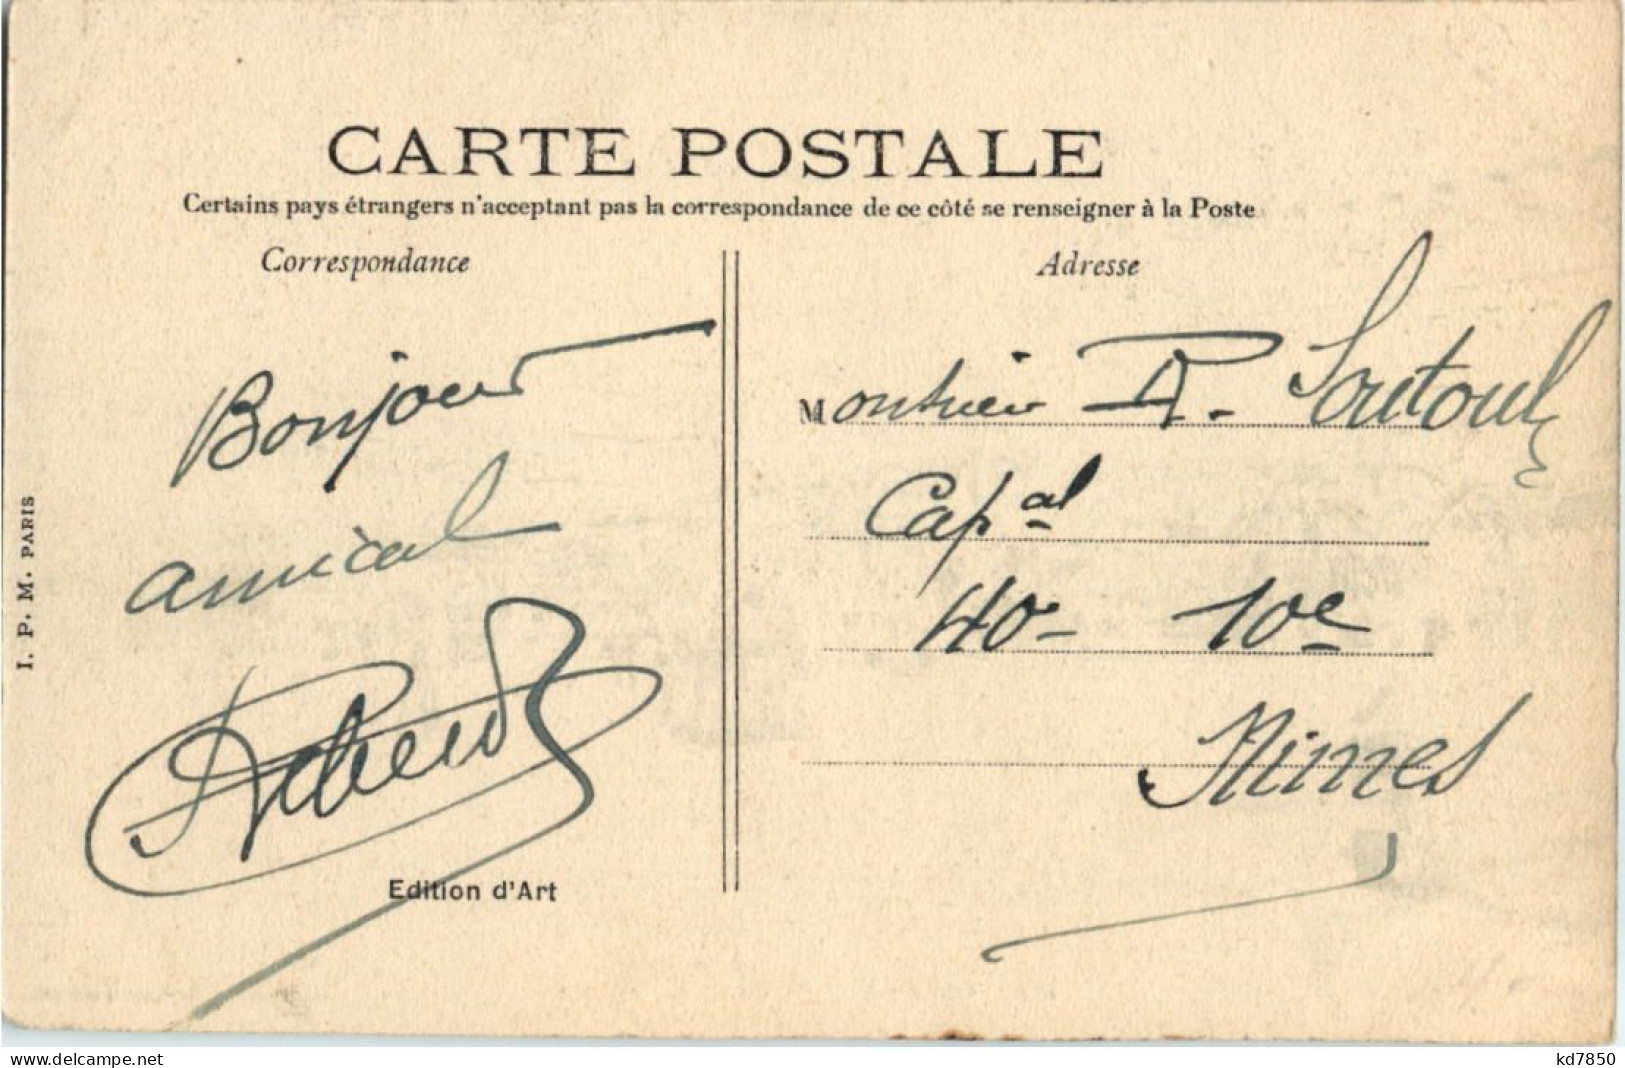 CARTE POSTALE
Certains pays étrangers n'acceptant pas la correspondance de ce côté se renseigner à la Poste
Correspondance
Bonjour
amical
Edition d'Art
I. P. M. PARIS
Adresse
Monsieur R. Soutoul
Cap al
40 - 10e
Nimes
www.delcampe.net
kd7850